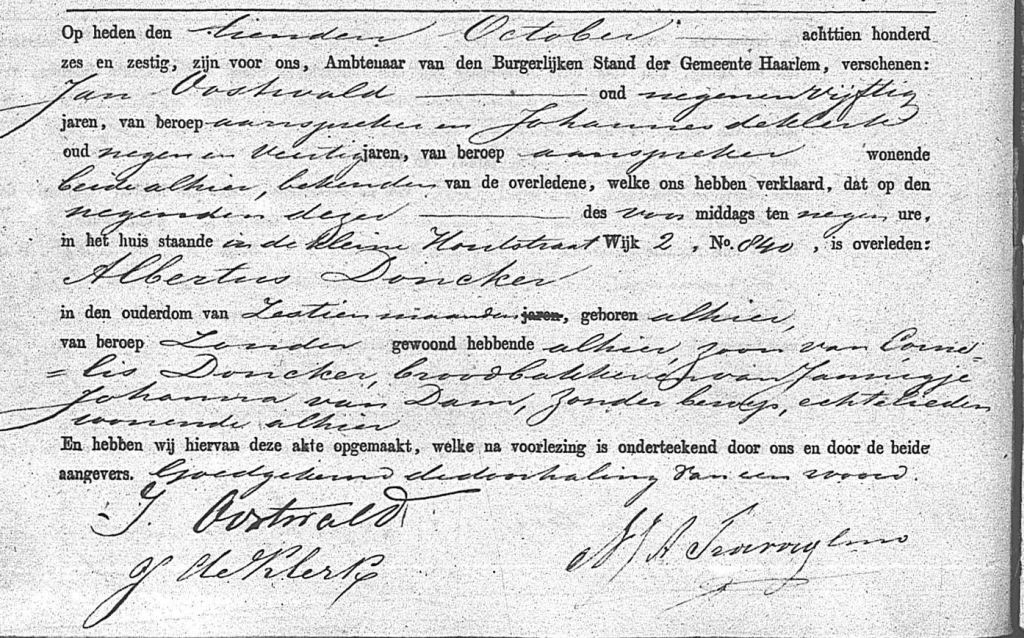 Op heden den tienden October achttien honderd
zes en zestig, zijn voor ons, Ambtenaar van den Burgerlijken Stand der Gemeente Haarlem, verschenen:
Jan Oostwald oud negen en vijftig
jaren, van beroep aanspreker en Johannes de Klerk
oud negen en veertig jaren, van beroep aanspreker wonende
beide alhier, bekenden van de overledene, welke ons hebben verklaard, dat op den
negenden dezer des voor middags ten negen ure,
in het huis staande in de kleine Houtstraat Wijk 2, No. 840, is overleden:
Albertus Doncker
in den ouderdom van Zestien maanden jaren, geboren alhier,
van beroep Zonder gewoond hebbende alhier, zoon van Corne=
=lis Doncker, broodbakker en van Jannigje
Johanna van Dam, zonder beroep, echtelieden
wonende alhier
En hebben wij hiervan deze akte opgemaakt, welke na voorlezing is onderteekend door ons en door de beide
aangevers. Goedgekeurd de doorhaling van een woord.
J. Oostwald
J de Klerk